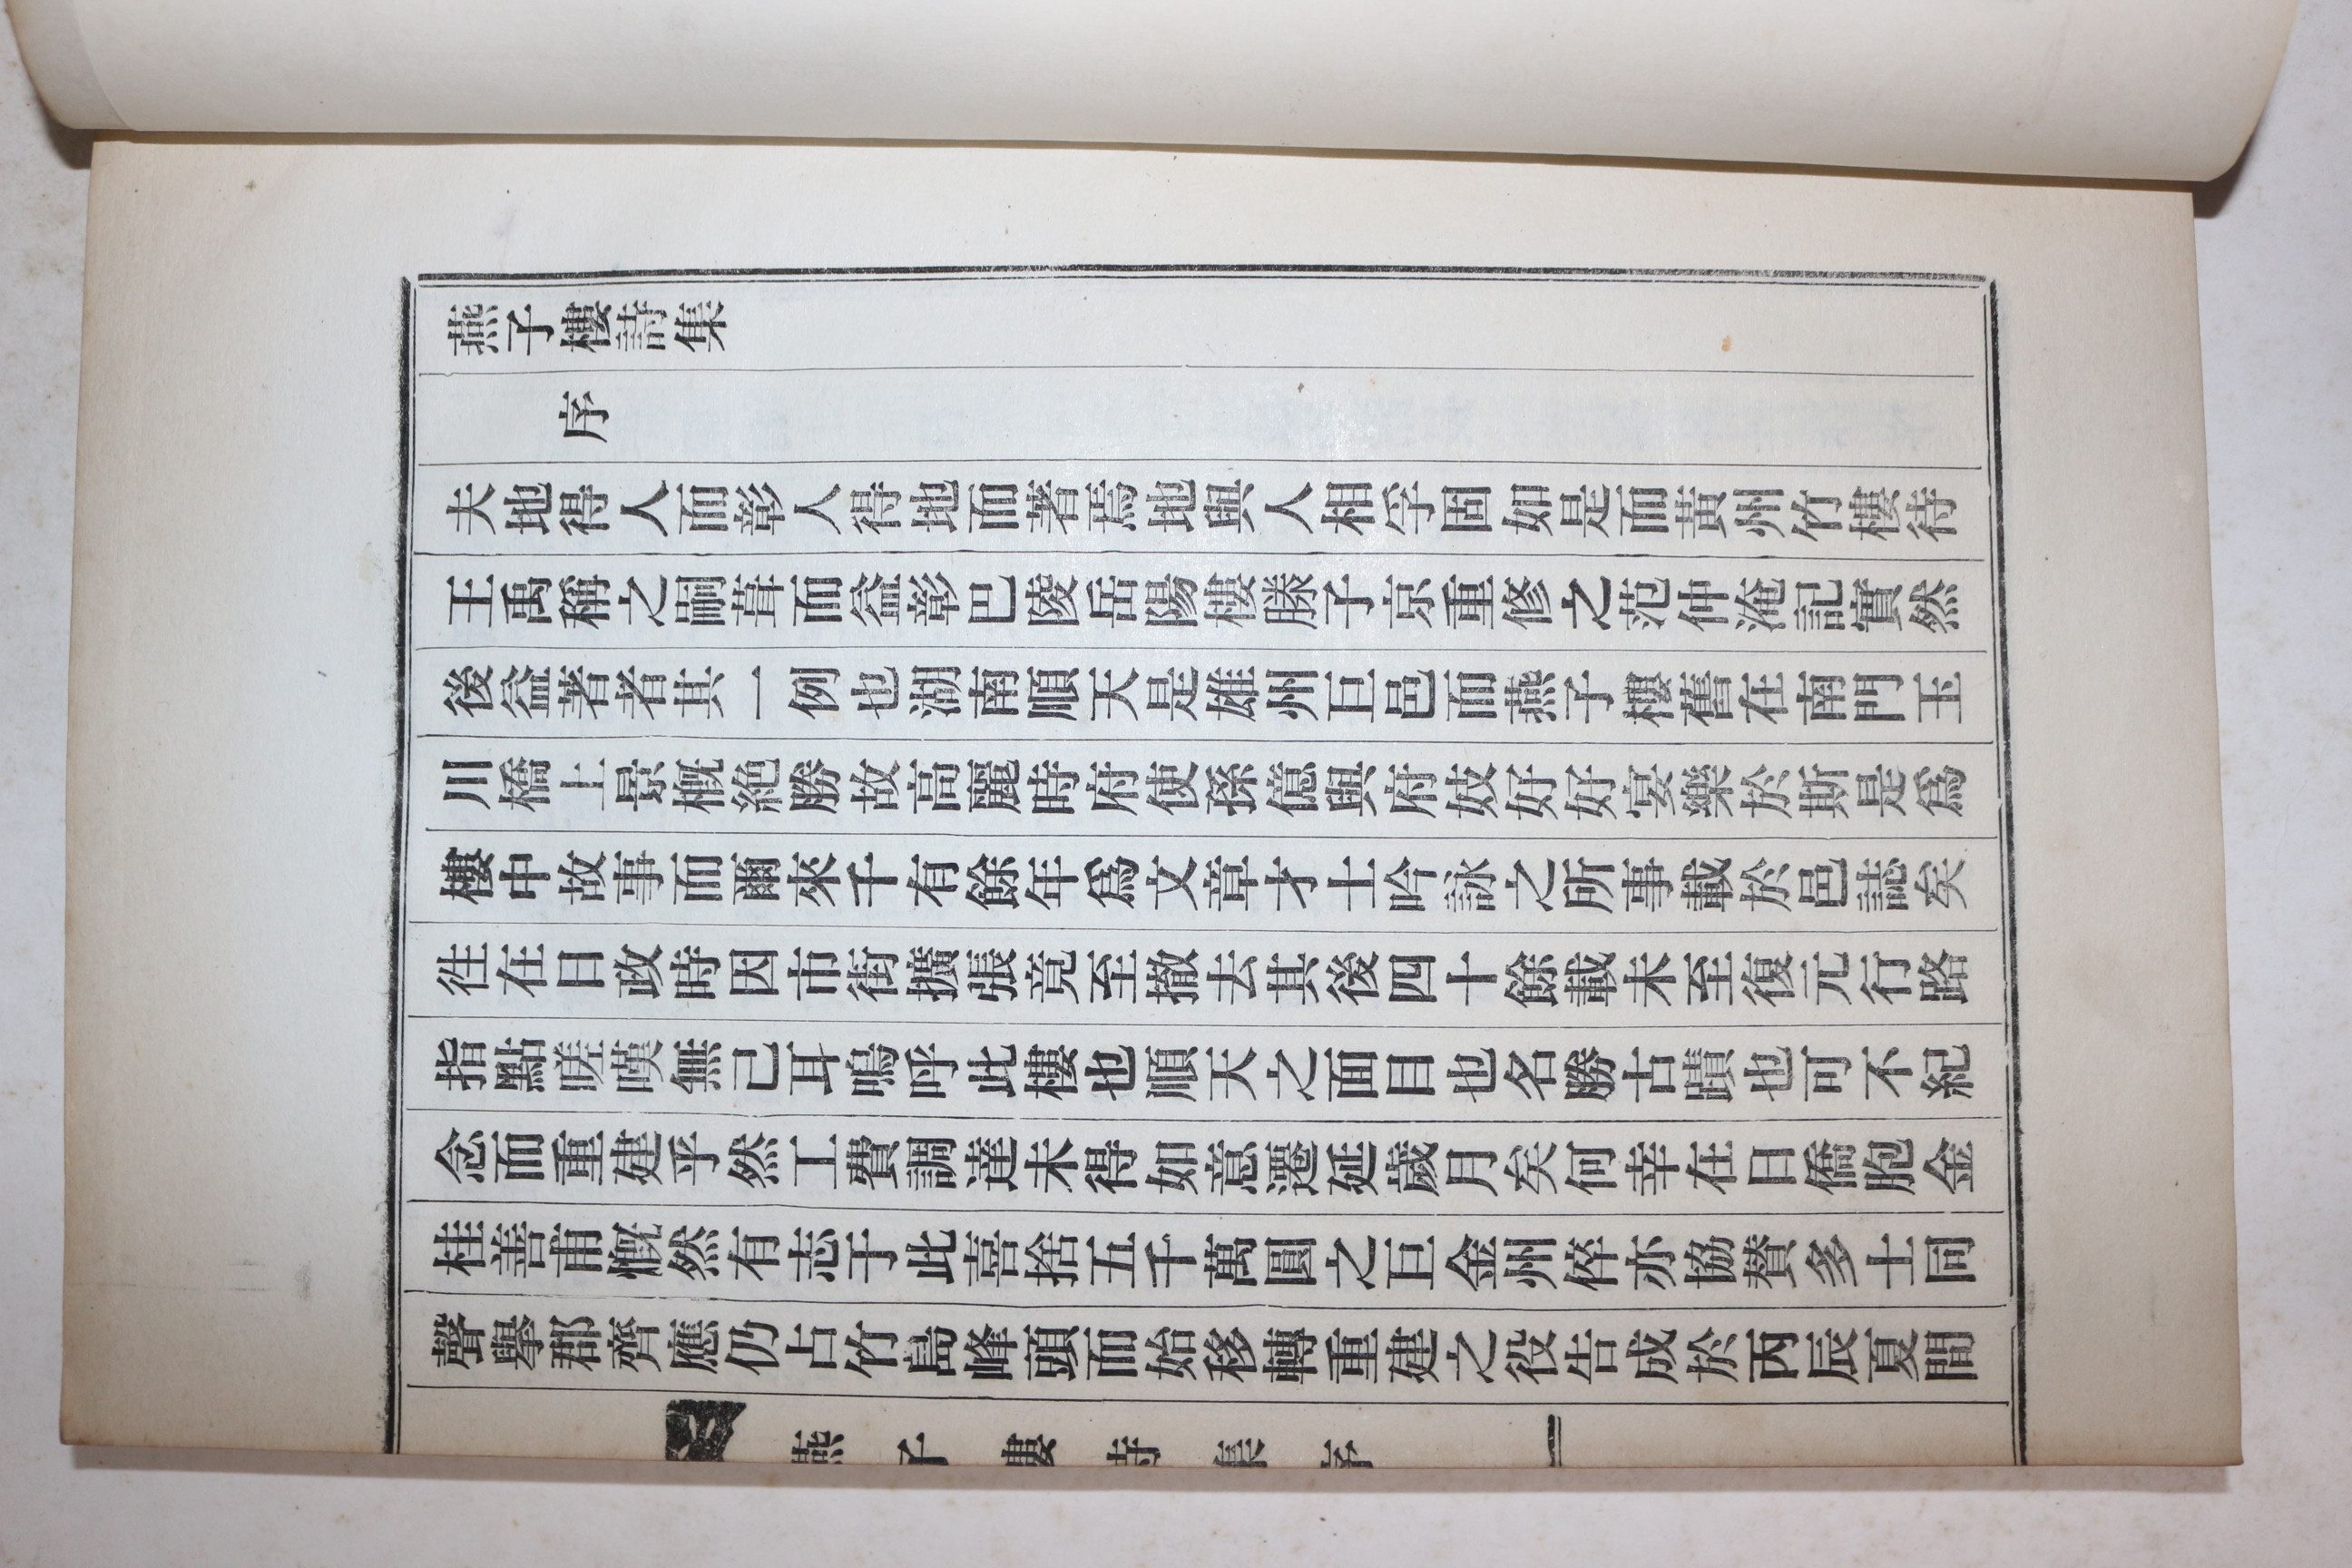 燕子樓詩集
序
夫地得人而彰人得地而著焉地與人相孚固如是而黃州竹樓待
王禹稱之嗣葺而益彰巴陵岳陽樓滕子京重修之范仲淹記實然
後益著者其一例也湖南順天是雄州巨邑而燕子樓舊在南門玉
川橋上景槪絶勝故高麗時府使孫億與府妓好好宴樂於斯是爲
樓中故事而爾來千有餘年爲文章才士吟詠之所事載於邑誌矣
徃在日政時因市街擴張竟至撤去其後四十餘載未至復元行路
指點嗟嘆無已耳嗚呼此樓也順天之面目也名勝古蹟也可不紀
念而重建乎然工費調達未得如意遷延歲月矣何幸在日僑胞金
桂善甫慨然有志于此喜捨五千萬圓之巨金州倅亦協賛多士同
聲擧郡齊應仍占竹島峰頭而始移轉重建之役告成於丙辰夏間
燕子樓詩集序 一